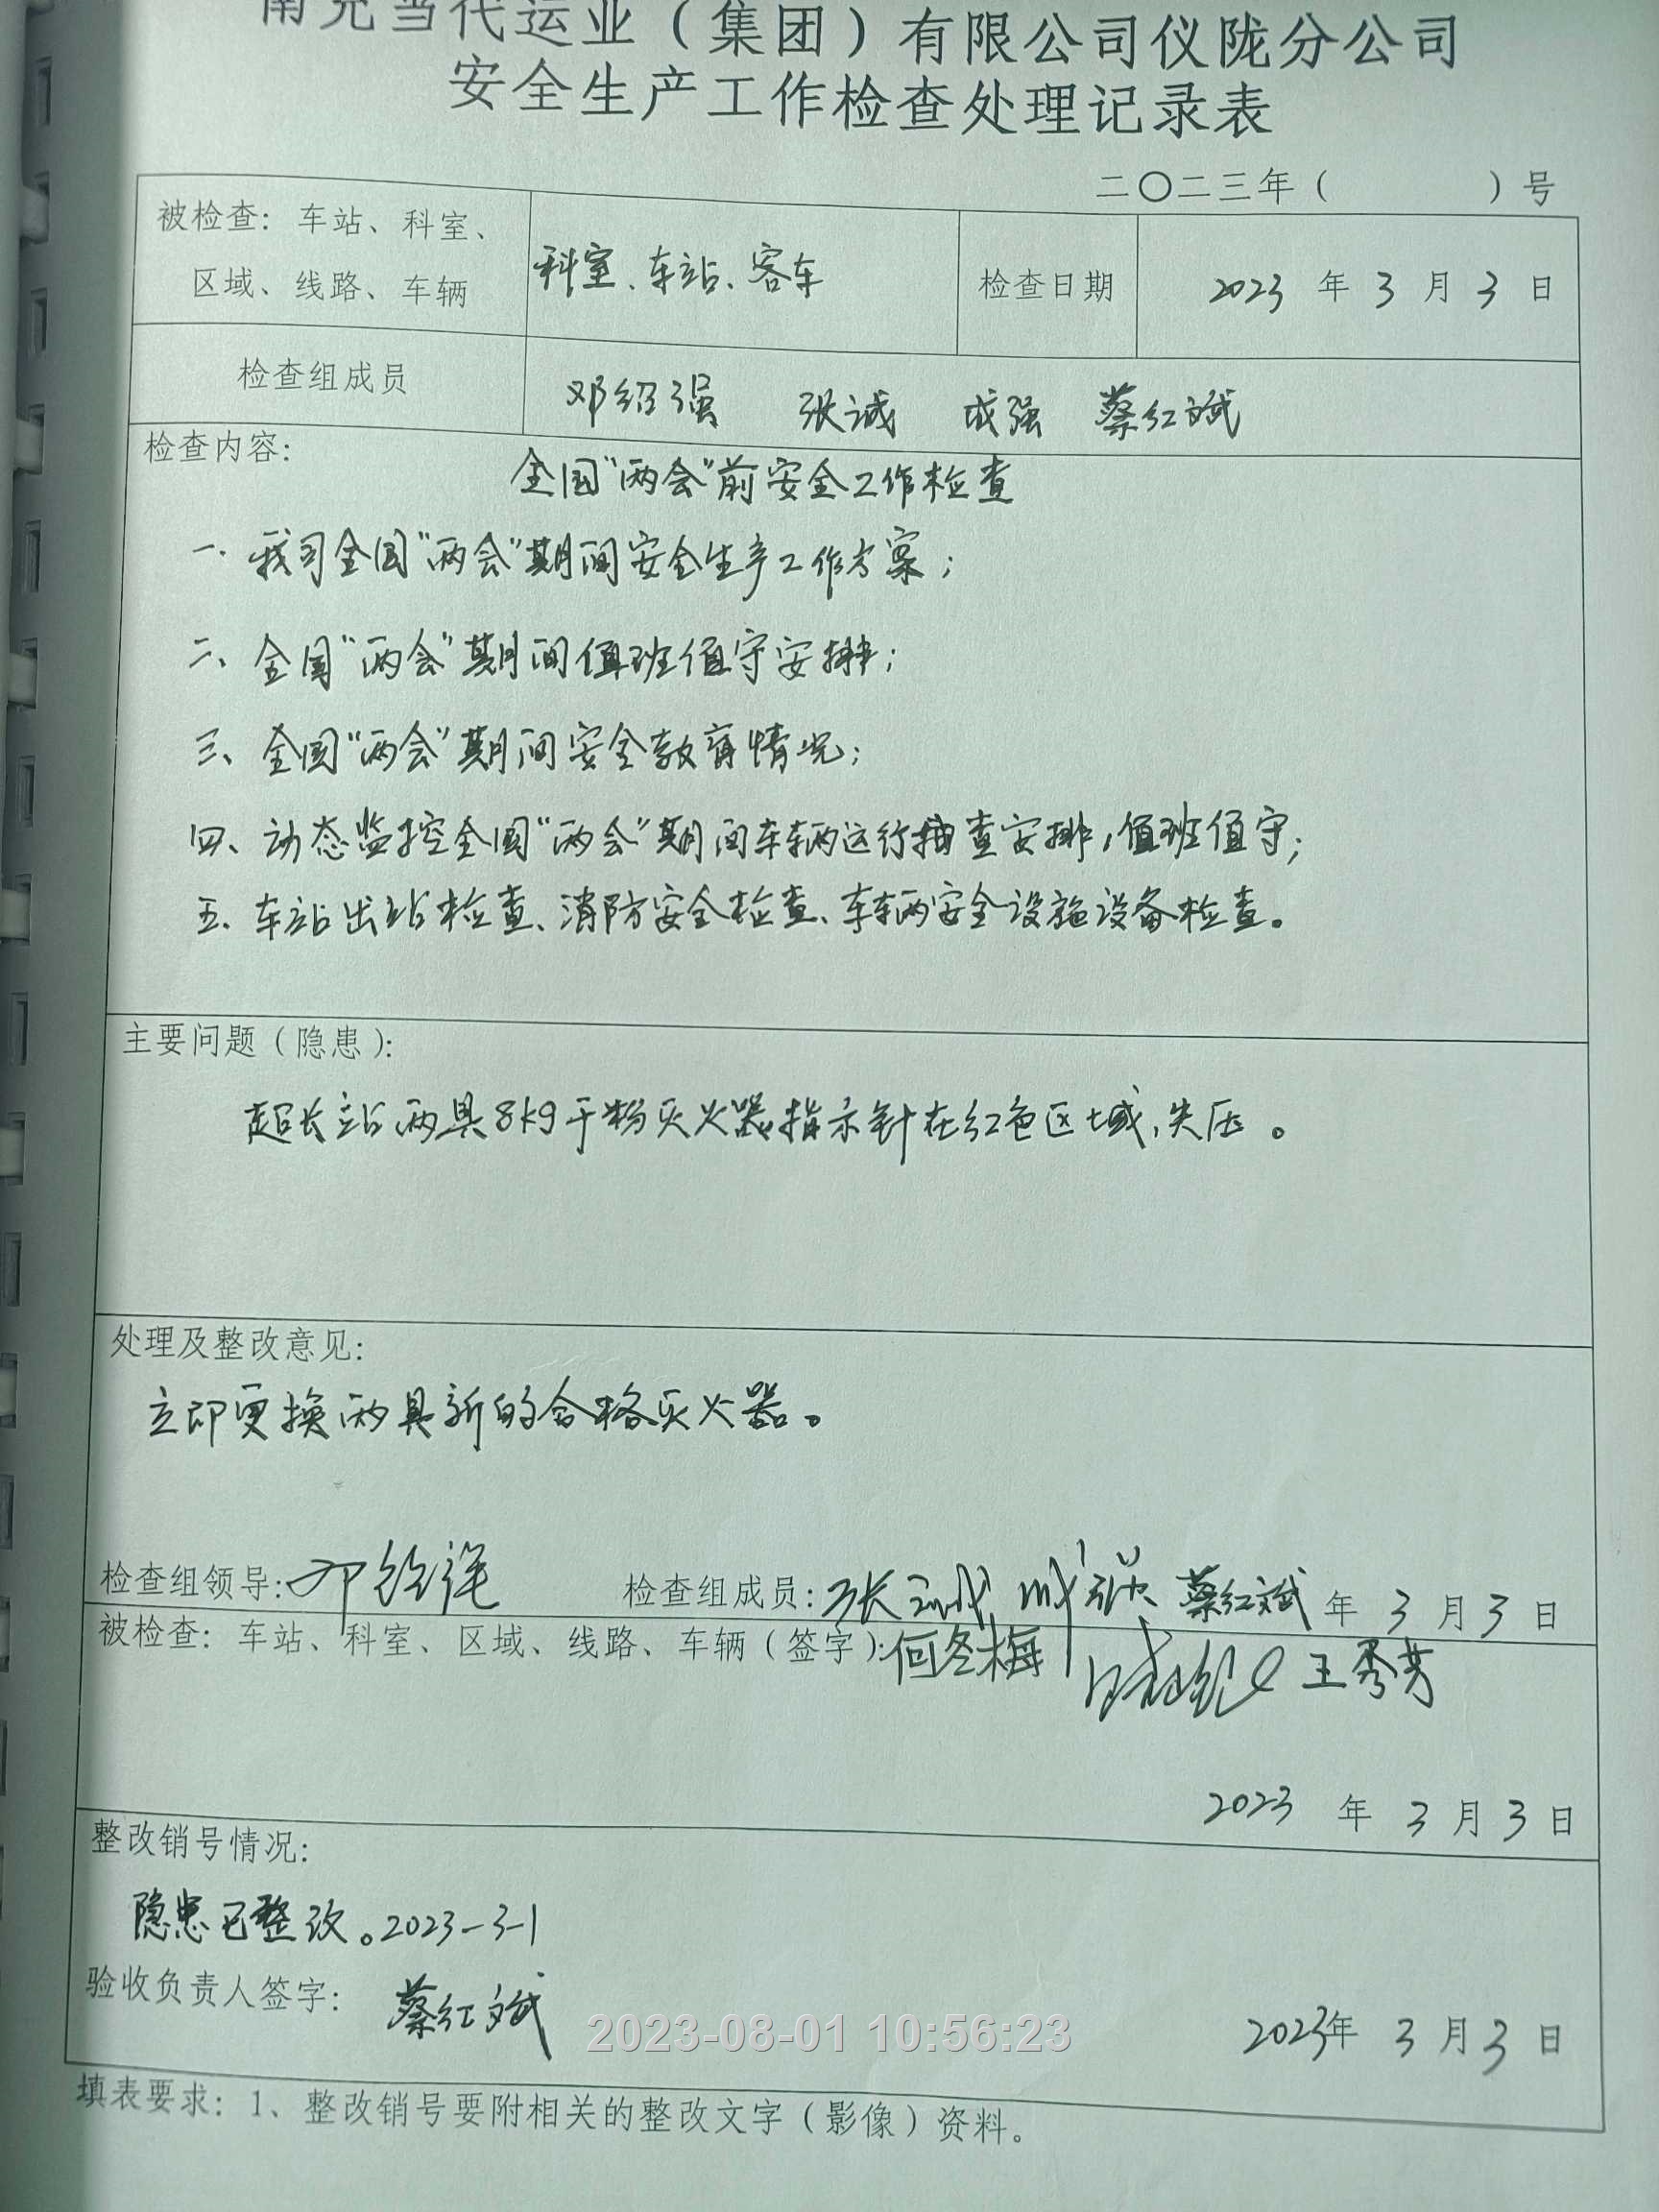 南充当代运业（集团）有限公司仪陇分公司
安全生产工作检查处理记录表
二〇二三年（ ）号
被检查：车站、科室、
区域、线路、车辆
科室、车站、客车
检查日期
2023 年 3 月 3 日
检查组成员
邓绍强 张诚 成强 蔡红斌
检查内容：
全国“两会”前安全工作检查
一、我司全国“两会”期间安全生产工作方案；
二、全国“两会”期间值班值守安排；
三、全国“两会”期间安全教育情况；
四、动态监控全国“两会”期间车辆运行抽查安排，值班值守；
五、车站出站检查、消防安全检查、车辆安全设施设备检查。
主要问题（隐患）：
超长站两具8kg干粉灭火器指示针在红色区域，失压。
处理及整改意见：
立即更换两具新的合格灭火器。
检查组领导：邓绍强 检查组成员：张诚 成强 蔡红斌 年 3 月 3 日
被检查：车站、科室、区域、线路、车辆（签字）：何冬梅 王秀芳
2023 年 3 月 3 日
整改销号情况：
隐患已整改。2023-3-1
验收负责人签字： 蔡红斌
2023年 3 月 3 日
2023-08-01 10:56:23
填表要求：1、整改销号要附相关的整改文字（影像）资料。